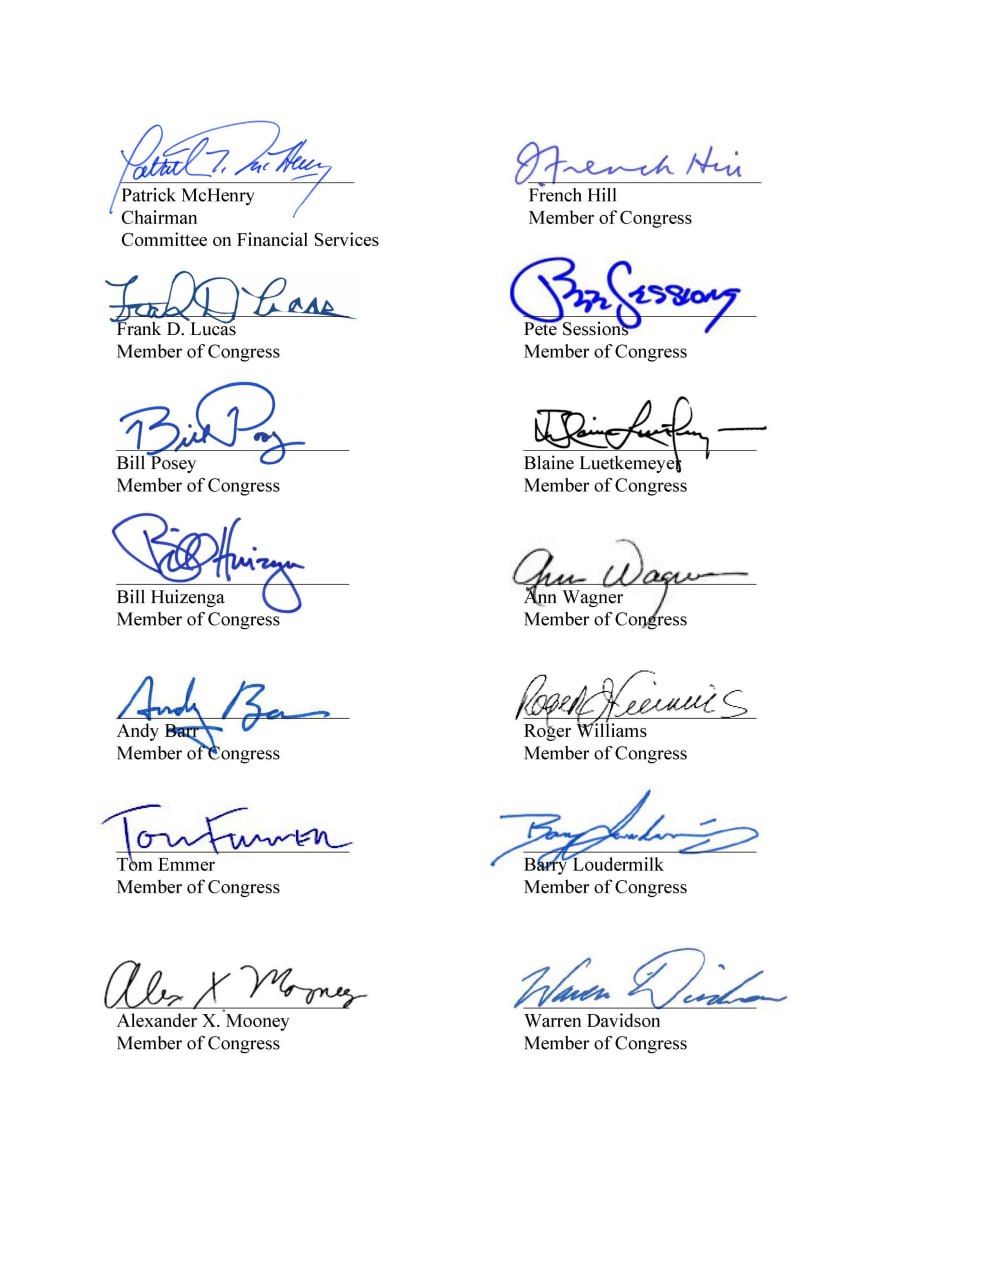 Patrick T. McHenry
Patrick McHenry
Chairman
Committee on Financial Services
J French Hill
French Hill
Member of Congress
Frank D Lucas
Frank D. Lucas
Member of Congress
Pete Sessions
Pete Sessions
Member of Congress
Bill Posey
Bill Posey
Member of Congress
Blaine Luetkemeyer
Member of Congress
Bill Huizenga
Bill Huizenga
Member of Congress
Ann Wagner
Ann Wagner
Member of Congress
Andy Barr
Andy Barr
Member of Congress
Roger Williams
Roger Williams
Member of Congress
Tom Emmer
Tom Emmer
Member of Congress
Barry Loudermilk
Barry Loudermilk
Member of Congress
Alex X Mooney
Alexander X. Mooney
Member of Congress
Warren Davidson
Warren Davidson
Member of Congress